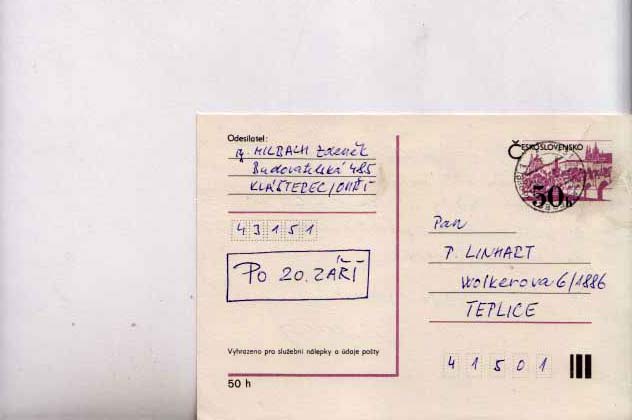 Odesílatel:
HILBACH Zdeněk
Budovatelská 485
KLÁŠTEREC/OHŘÍ
43151
PO 20. ZÁŘÍ
Vyhrazeno pro služební nálepky a údaje pošty
50 h
ČESKOSLOVENSKO
50h
Pan
P. LINHART
Wolkerova 6/1886
TEPLICE
41501